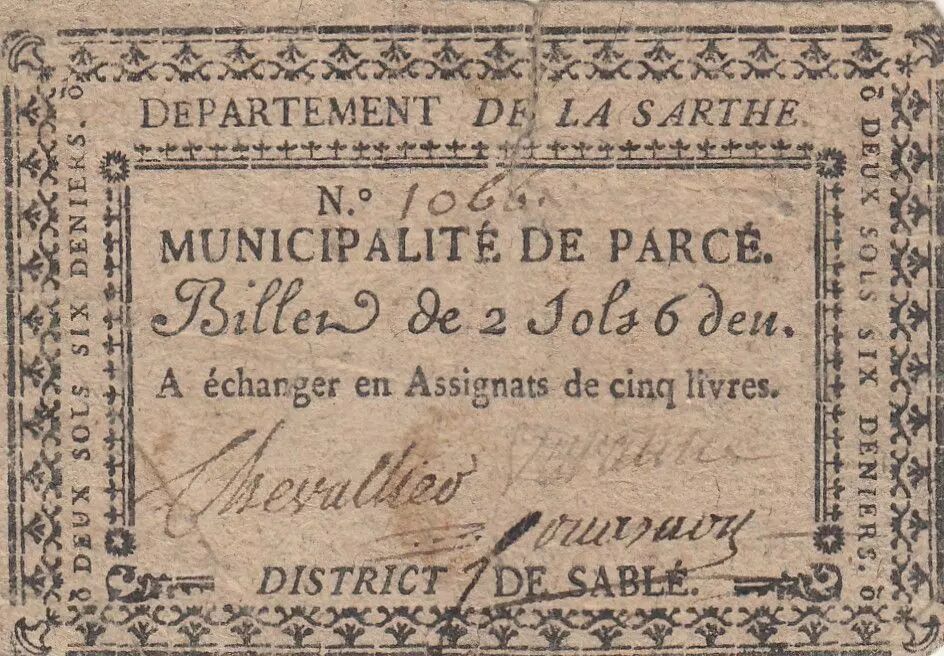 DEPARTEMENT DE LA SARTHE.
DEUX SOLS SIX DENIERS.
DEUX SOLS SIX DENIERS.
N.º 1066.
MUNICIPALITÉ DE PARCÉ.
Billet de 2 Sols 6 den.
A échanger en Assignats de cinq livres.
Chevallier
DISTRICT DE SABLÉ.